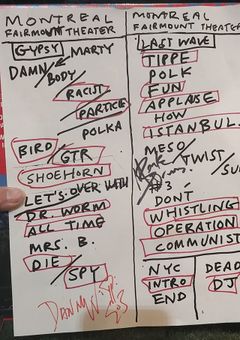 MONTREAL
FAIRMOUNT THEATER
GYPSY MARTY
DAMN/BODY
RACIST
PARTICLE
POLKA
BIRD/GTR
SHOEHORN
LET'S OVER WITH
DR. WORM
ALL TIME
MRS. B.
DIE/SPY
DANNY
MONTREAL
FAIRMOUNT THEATER
LAST WAVE
TIPPE
POLK
FUN
APPLAUSE
HOW
ISTANBUL
MESO/TWIST
#3
DON'T
WHISTLING
OPERATION
COMMUNIST
NYC
INTRO
END
DEAD
DJ